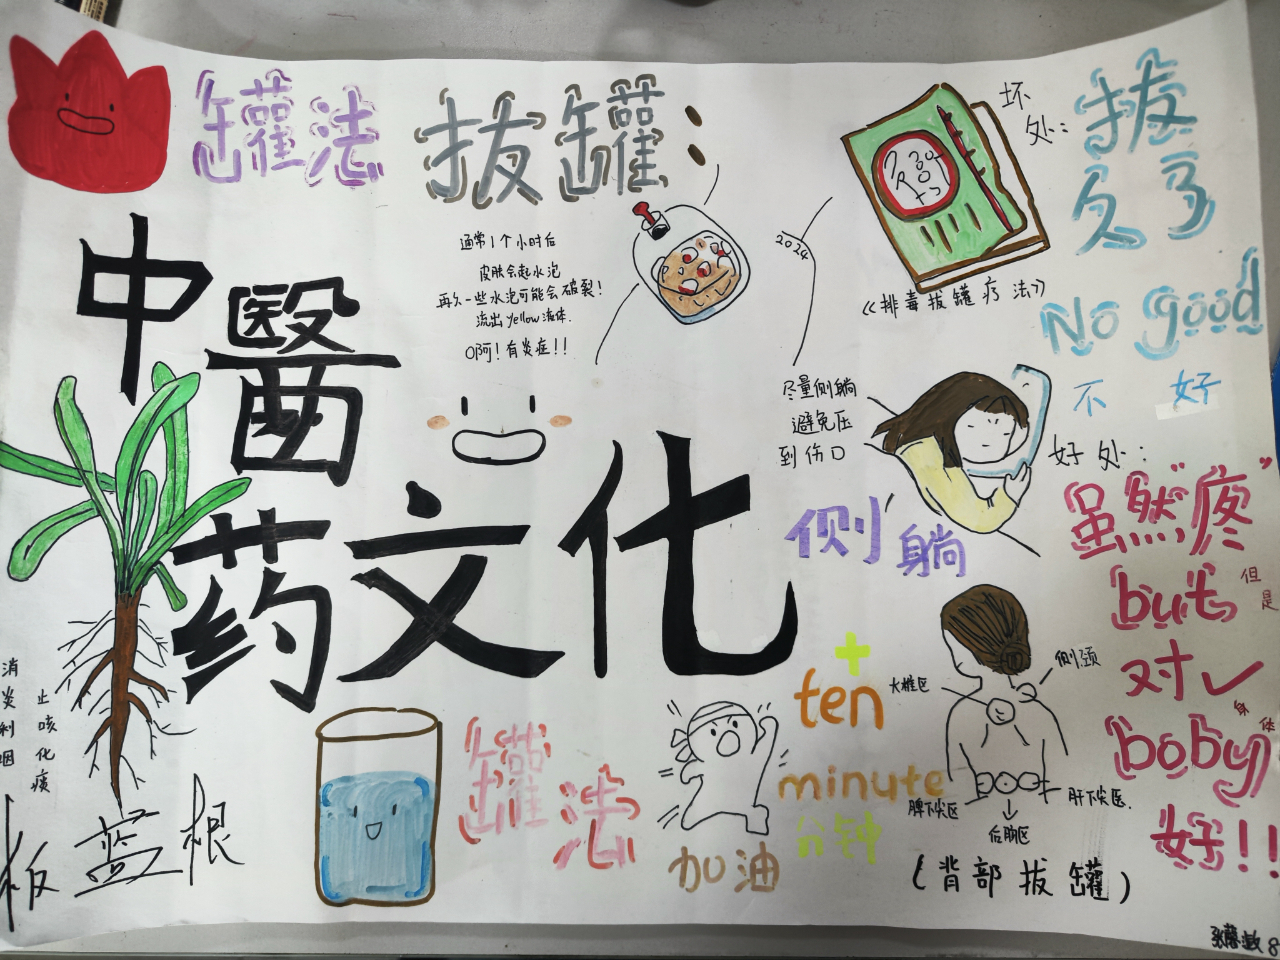 罐法
拔罐:
中醫
药文化
通常1个小时后
皮肤会起水泡
再久一些水泡可能会破裂!
流出yellow液体.
O阿!有炎症!!
2024
坏处:
拔
久了
No good
不好
《排毒拔罐疗法》
尽量侧躺
避免压
到伤口
侧躺
好处:
虽然"疼"
but
但是
对✓
boby
身体
好!!
+
ten
minute
分钟
大椎区
侧颈
脾下尖区
肝下尖区.
后腰区
(背部拔罐)
加油
罐法
消炎利咽
止咳化痰
板蓝根